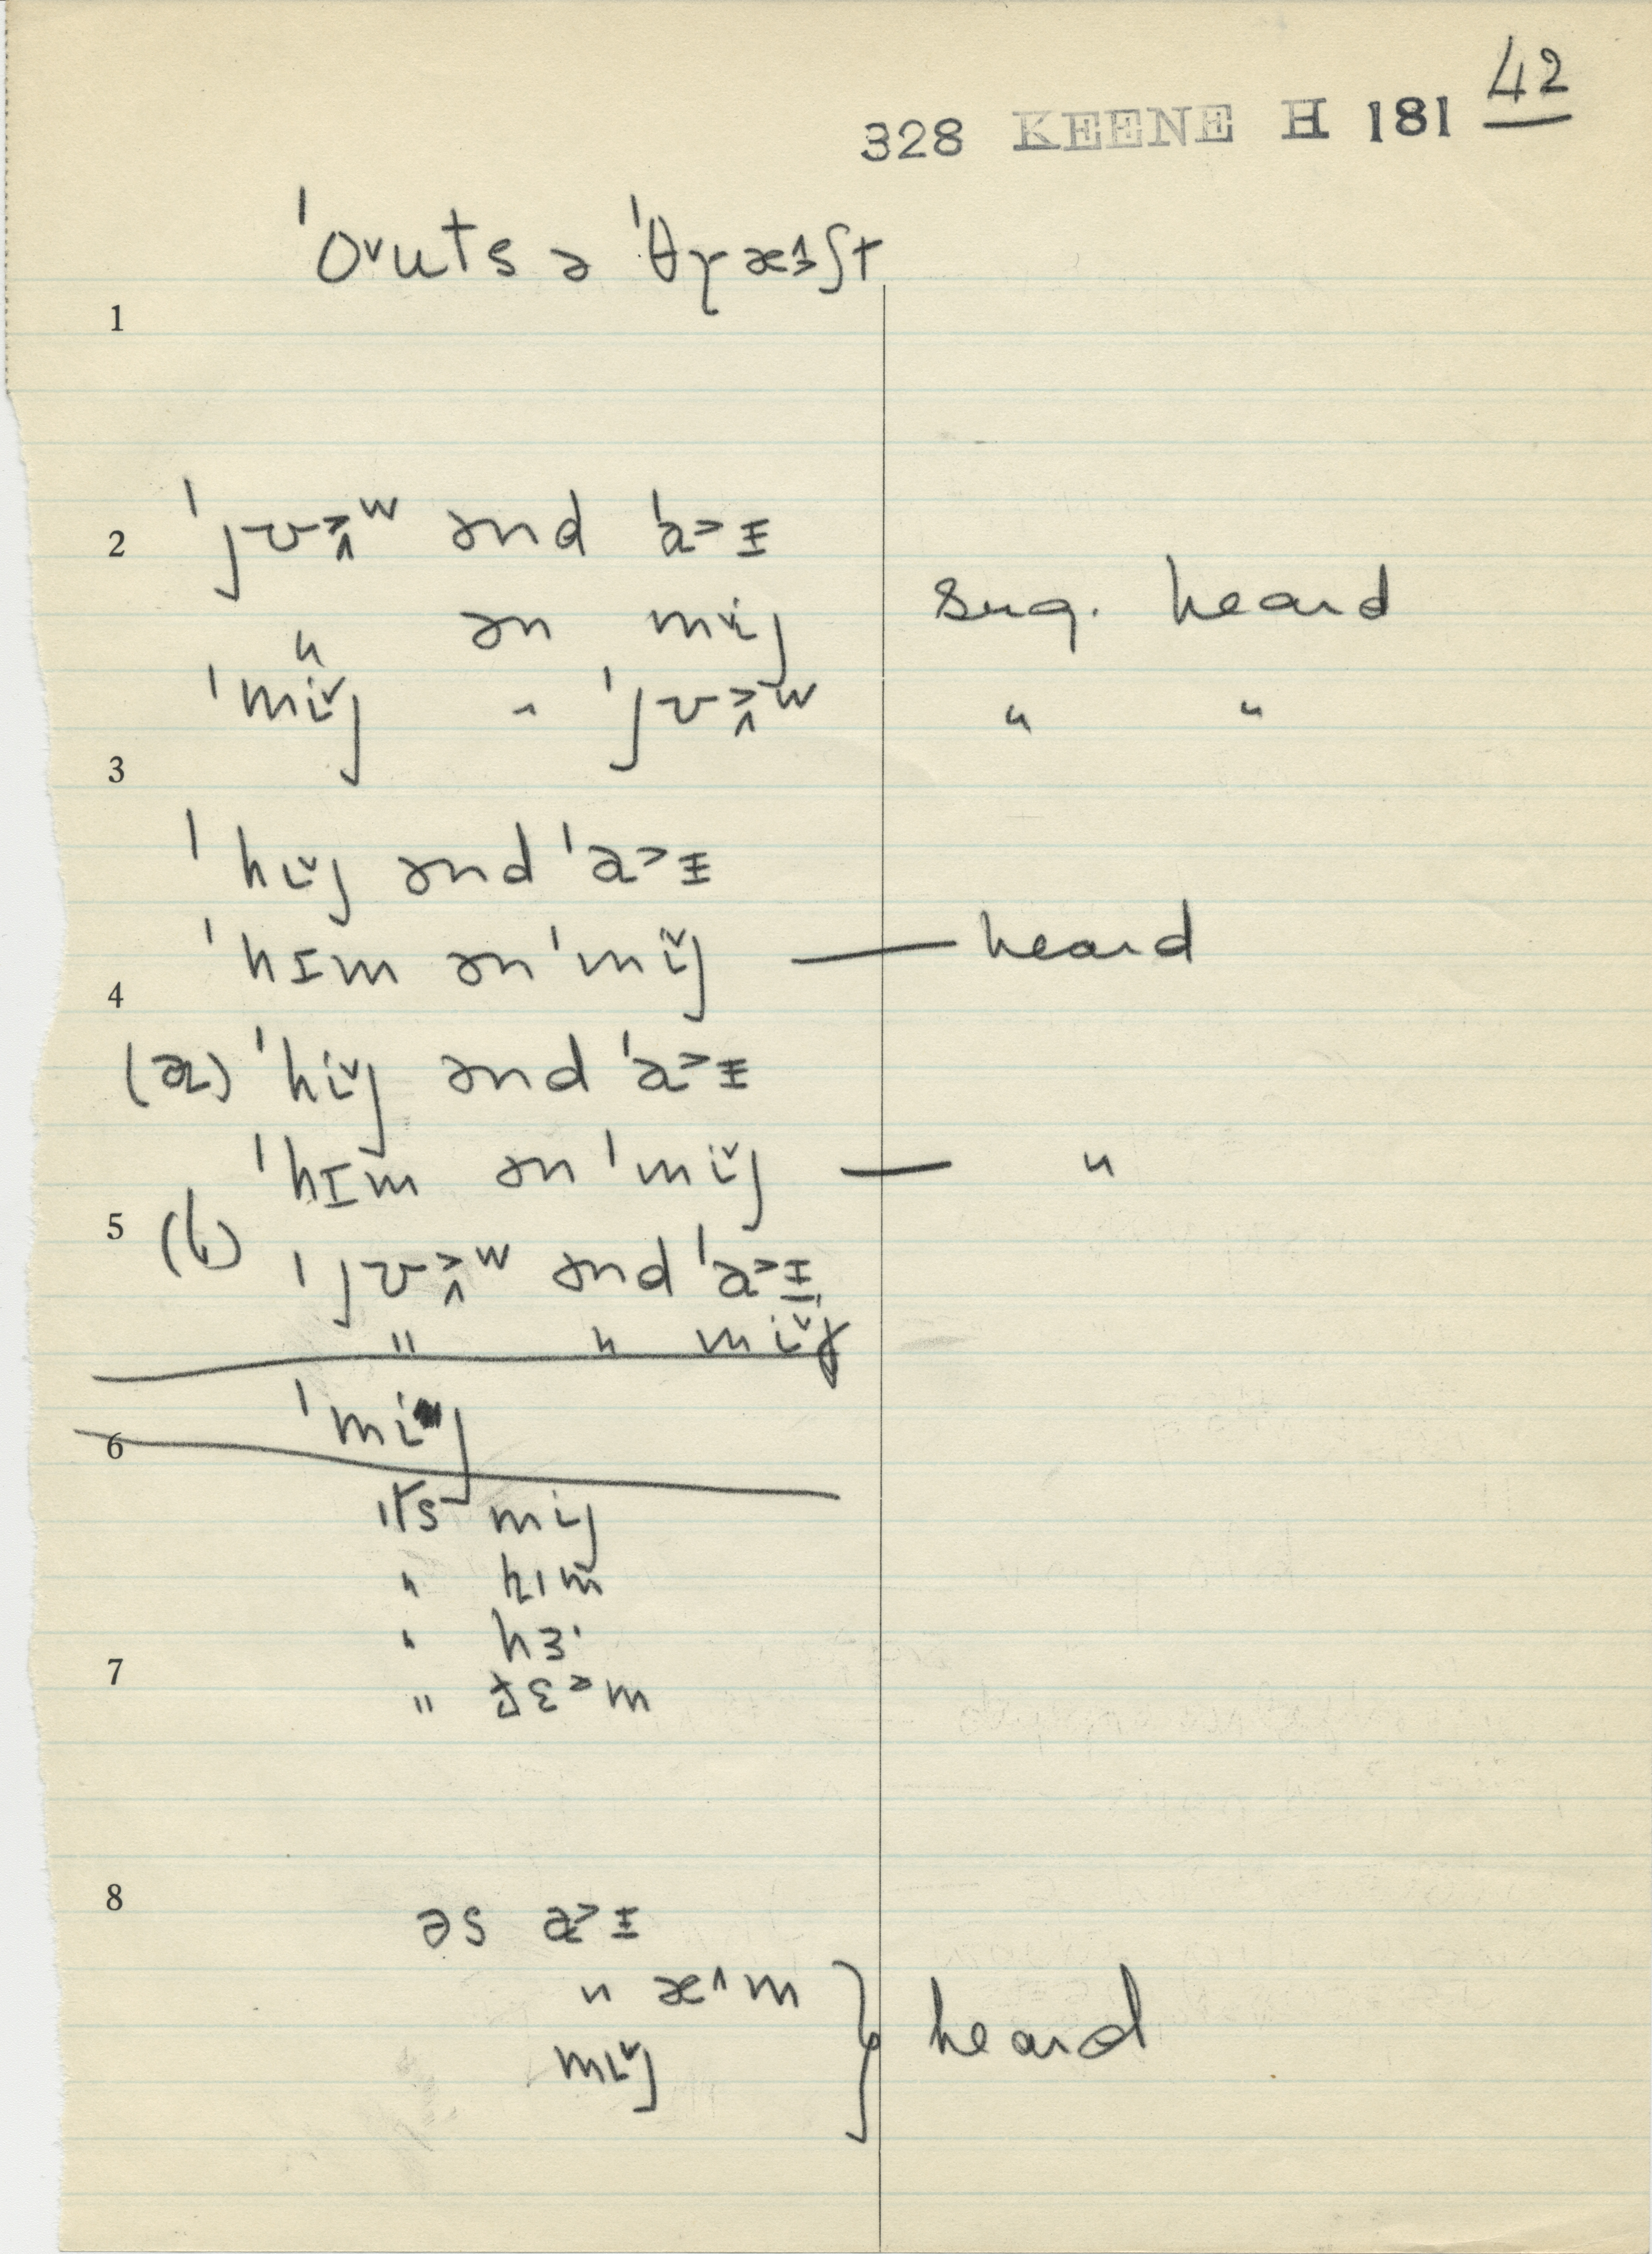 328 KEENE H 181 42
ˈo˅uts ə ˈθɣæ˄ʃt
1
2 ˈjʊʉ˃ʷ ənd ˈa˃ɪ
" ən mi˅j sug. heard
ˈmi˅j " ˈjʊʉ˃ʷ " "
3
ˈhi˅j ənd ˈa˃ɪ
ˈhɪm ən ˈmi˅j — heard
4
(a) ˈhi˅j ənd ˈa˃ɪ
ˈhɪm ən ˈmi˅j — "
5 (b)
ˈjʊʉ˃ʷ ənd ˈa˃ɪ
" " mi˅j
ˈmij
6
ɪts mij
" hɪm
" hɜ·
7
" ðɛ˃m
8
əs a˃ɪ
" æ˄m
mi˅j } heard